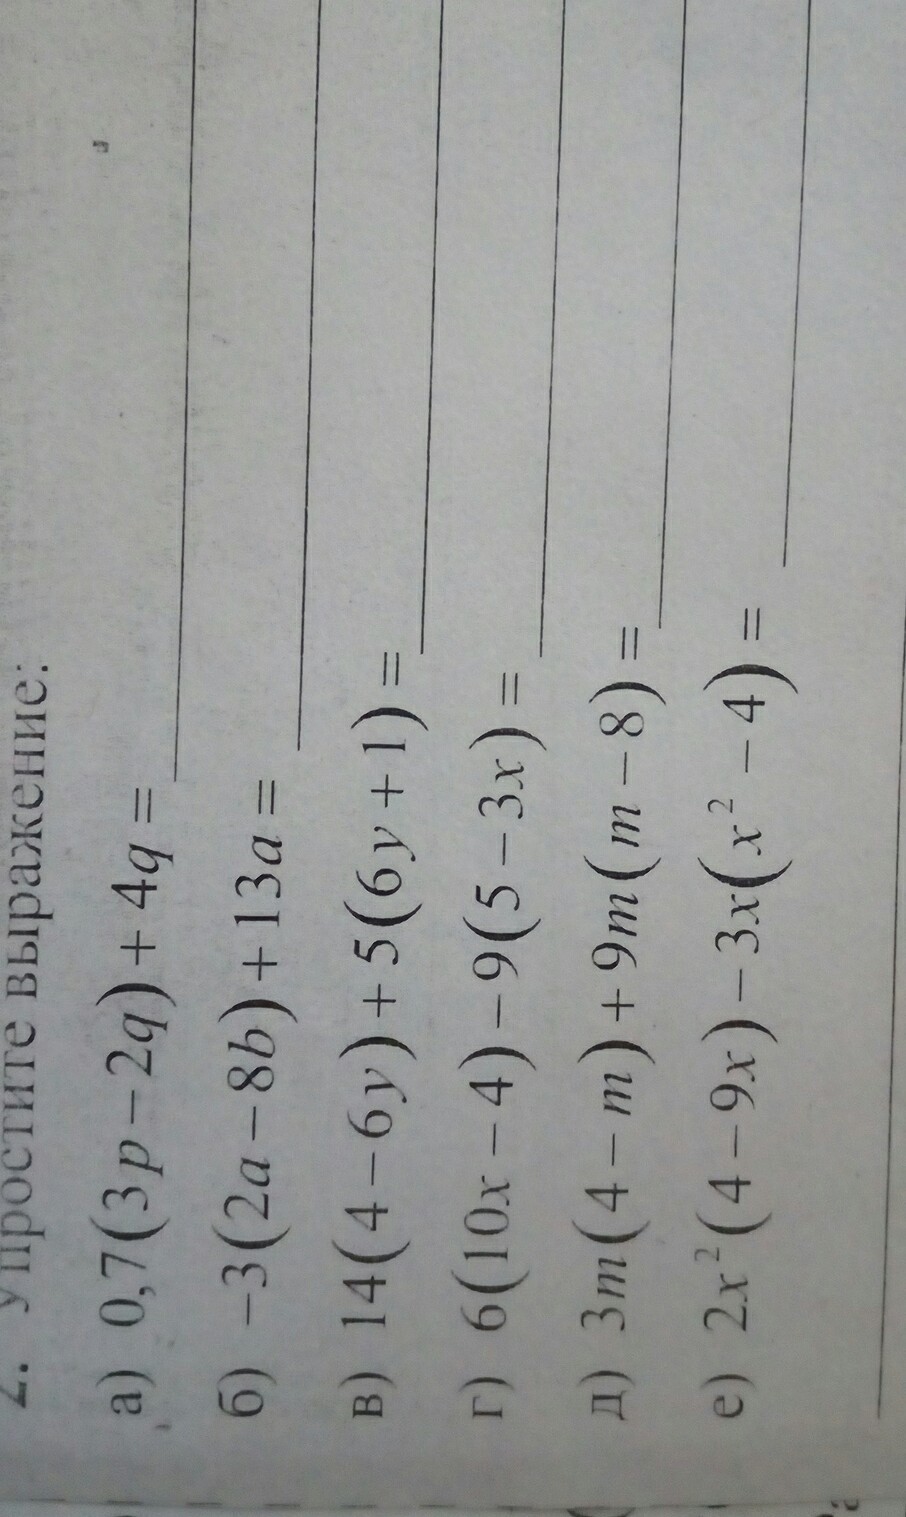 2. Упростите выражение:
а) 0,7(3p − 2q) + 4q =
б) −3(2a − 8b) + 13a =
в) 14(4 − 6y) + 5(6y + 1) =
г) 6(10x − 4) − 9(5 − 3x) =
д) 3m(4 − m) + 9m(m − 8) =
е) 2x²(4 − 9x) − 3x(x² − 4) =